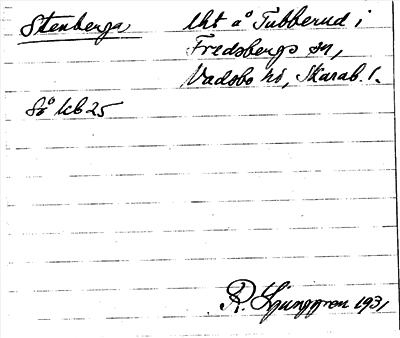 Stenberga lht å Tubberud i
Fredsbergs sn,
Vadsbo hd, Skarab. l.
Så kb 25
R. Ljunggren 1931